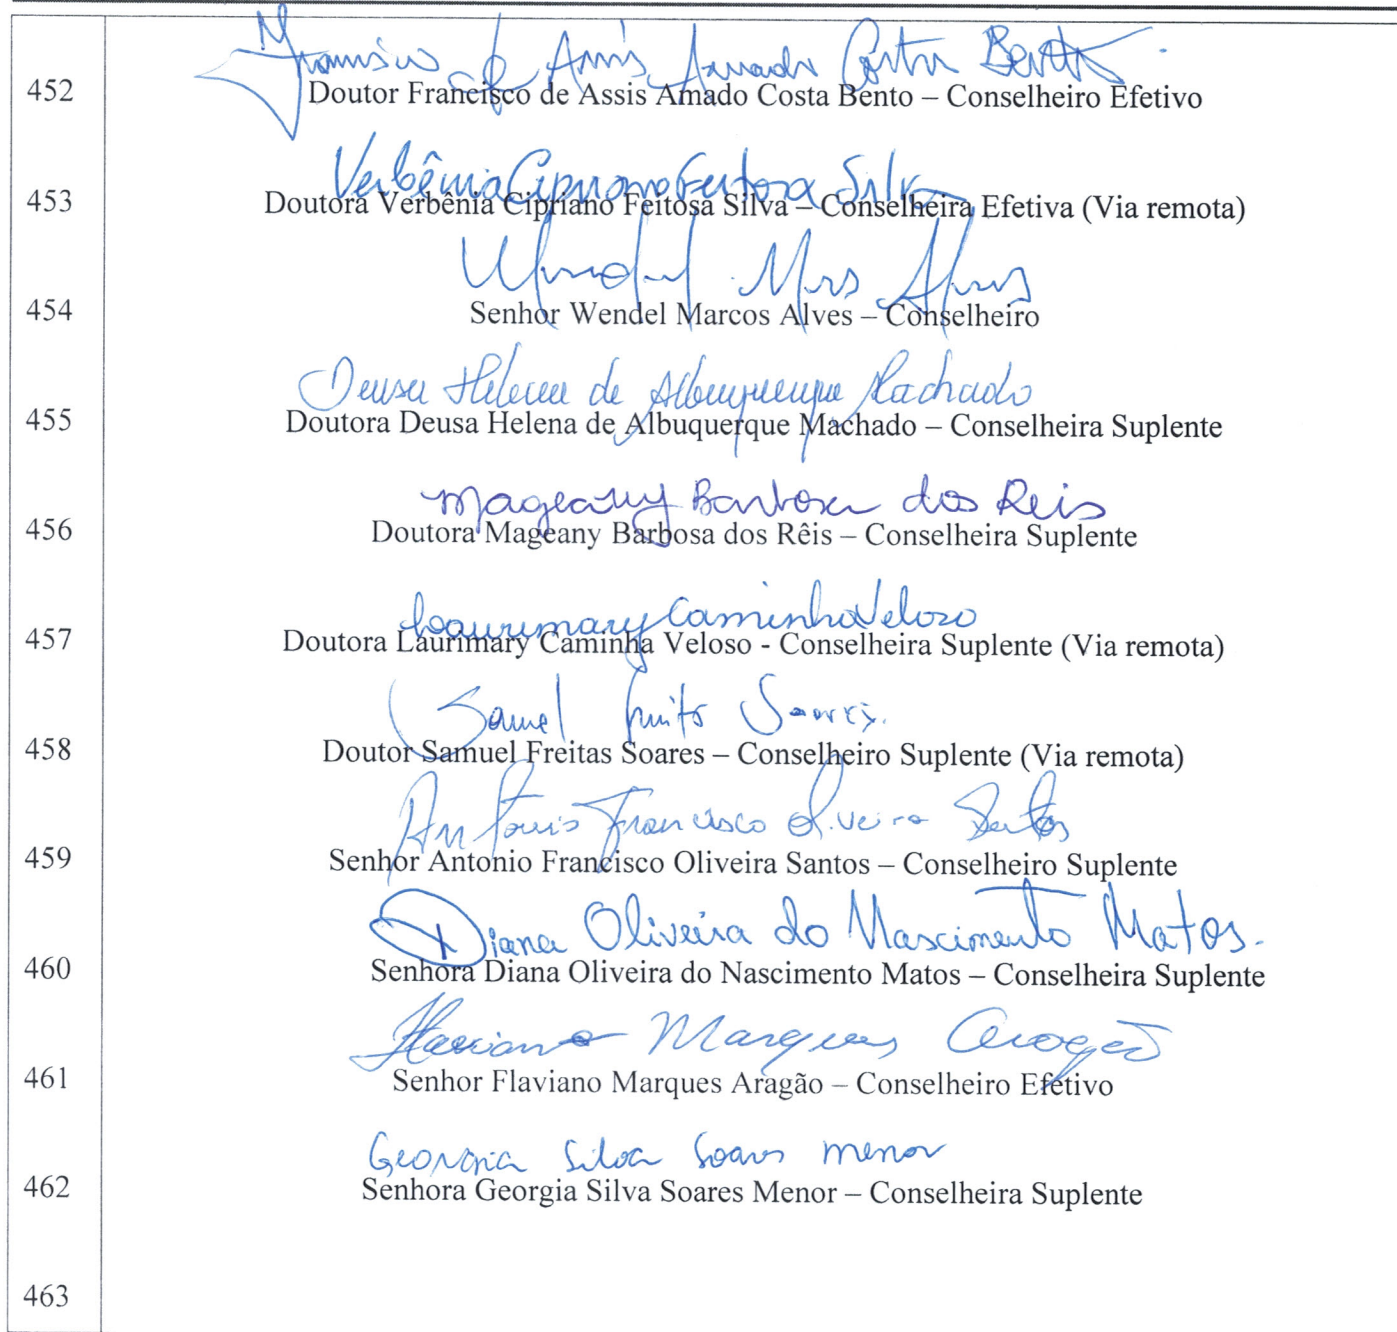 Francisco de Assis Amado Costa Bento
452 Doutor Francisco de Assis Amado Costa Bento – Conselheiro Efetivo
Verbênia Cipriano Feitosa Silva
453 Doutora Verbênia Cipriano Feitosa Silva – Conselheira Efetiva (Via remota)
454 Senhor Wendel Marcos Alves – Conselheiro
Deusa Helena de Albuquerque Machado
455 Doutora Deusa Helena de Albuquerque Machado – Conselheira Suplente
Mageany Barbosa dos Reis
456 Doutora Mageany Barbosa dos Rêis – Conselheira Suplente
Laurimary Caminha Veloso
457 Doutora Laurimary Caminha Veloso - Conselheira Suplente (Via remota)
Samuel Freitas Soares.
458 Doutor Samuel Freitas Soares – Conselheiro Suplente (Via remota)
Antonio Francisco Oliveira Santos
459 Senhor Antonio Francisco Oliveira Santos – Conselheiro Suplente
Diana Oliveira do Nascimento Matos.
460 Senhora Diana Oliveira do Nascimento Matos – Conselheira Suplente
Flaviano Marques Aragão
461 Senhor Flaviano Marques Aragão – Conselheiro Efetivo
Georgia Silva Soares menor
462 Senhora Georgia Silva Soares Menor – Conselheira Suplente
463